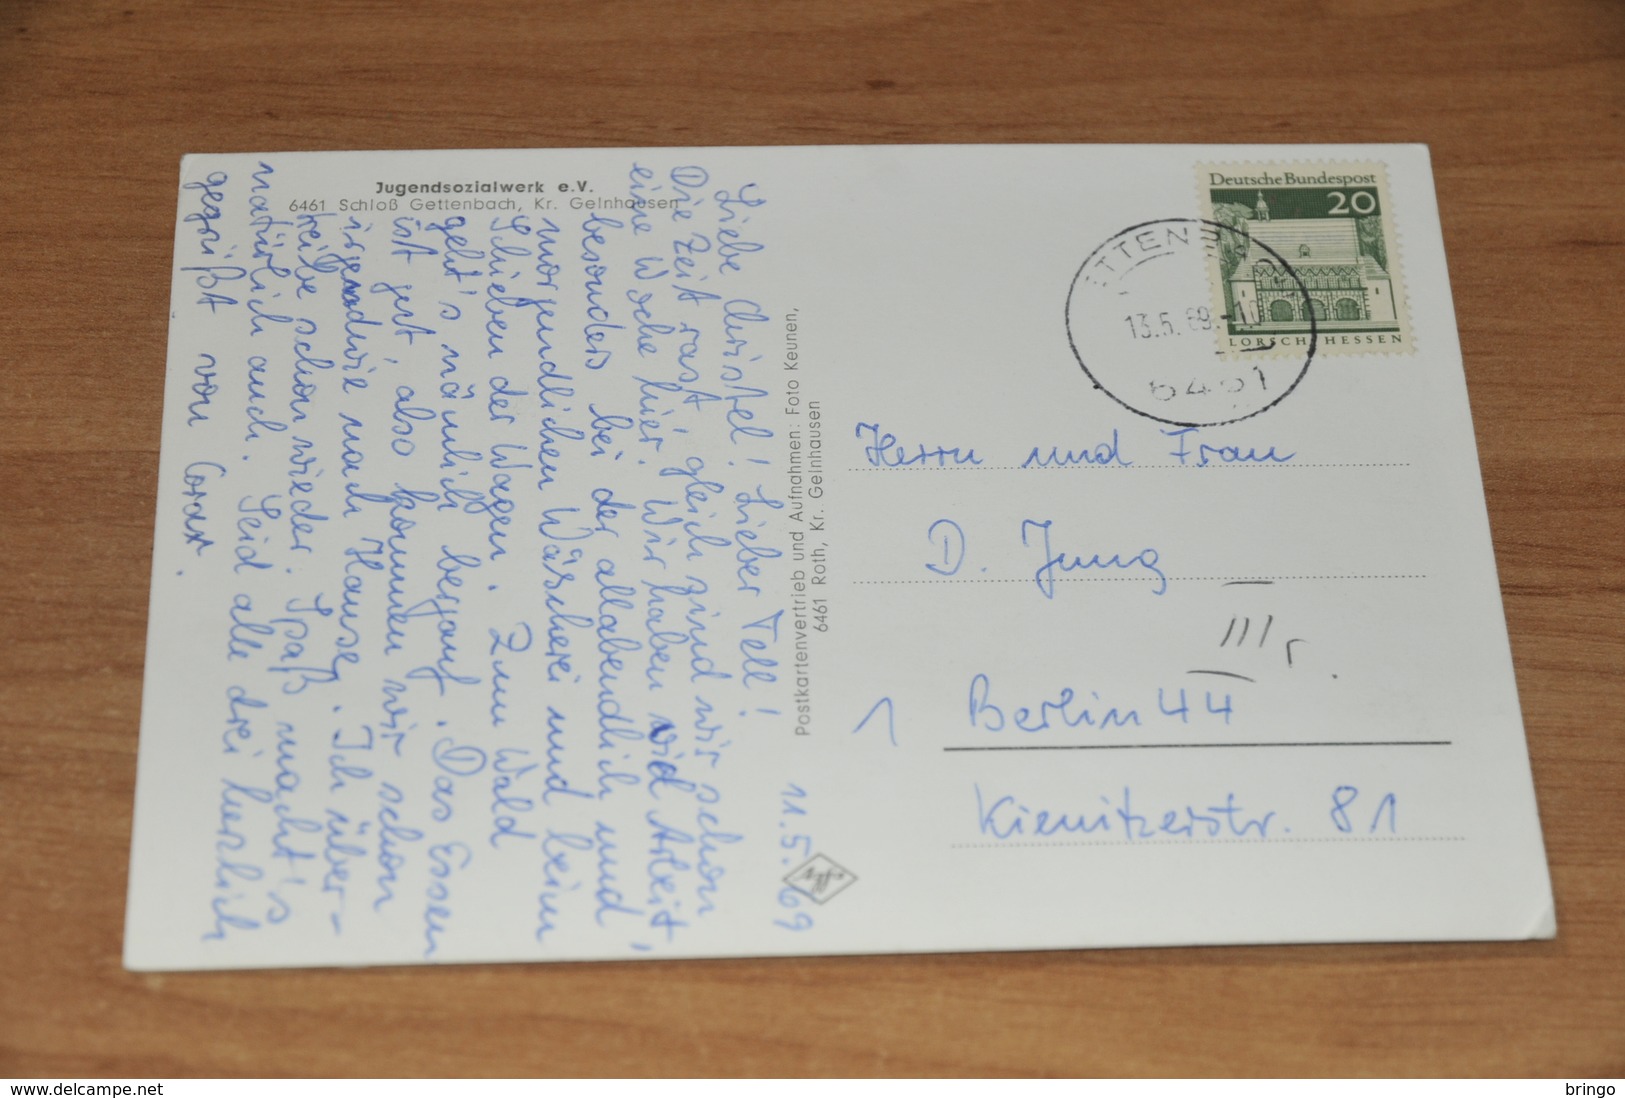 Jugendsozialwerk e.V.
6461 Schloß Gettenbach, Kr. Gelnhausen
11.5.69
Liebe Christel! Lieber Tell!
Die Zeit rast, gleich sind wir schon
eine Woche hier. Wir haben viel Arbeit,
besonders bei der allabendlich und
morgendlichen Wäscherei und beim
Schieben der Wagen. Zum Wald
geht's nämlich bergauf. Das Essen
ist gut, also kommen wir schon
irgendwie nach Hause. Ich über-
treibe schon wieder. Spaß macht's
natürlich auch. Seid alle drei herzlich
gegrüßt von
Postkartenvertrieb und Aufnahmen: Foto Keunen,
6461 Roth, Kr. Gelnhausen
Deutsche Bundespost
20
LORSCH HESSEN
13.5.69.-10
Herrn und Frau
D. Jung
III
1 Berlin 44
Kienitzerstr. 81
delcampe.net
bringo